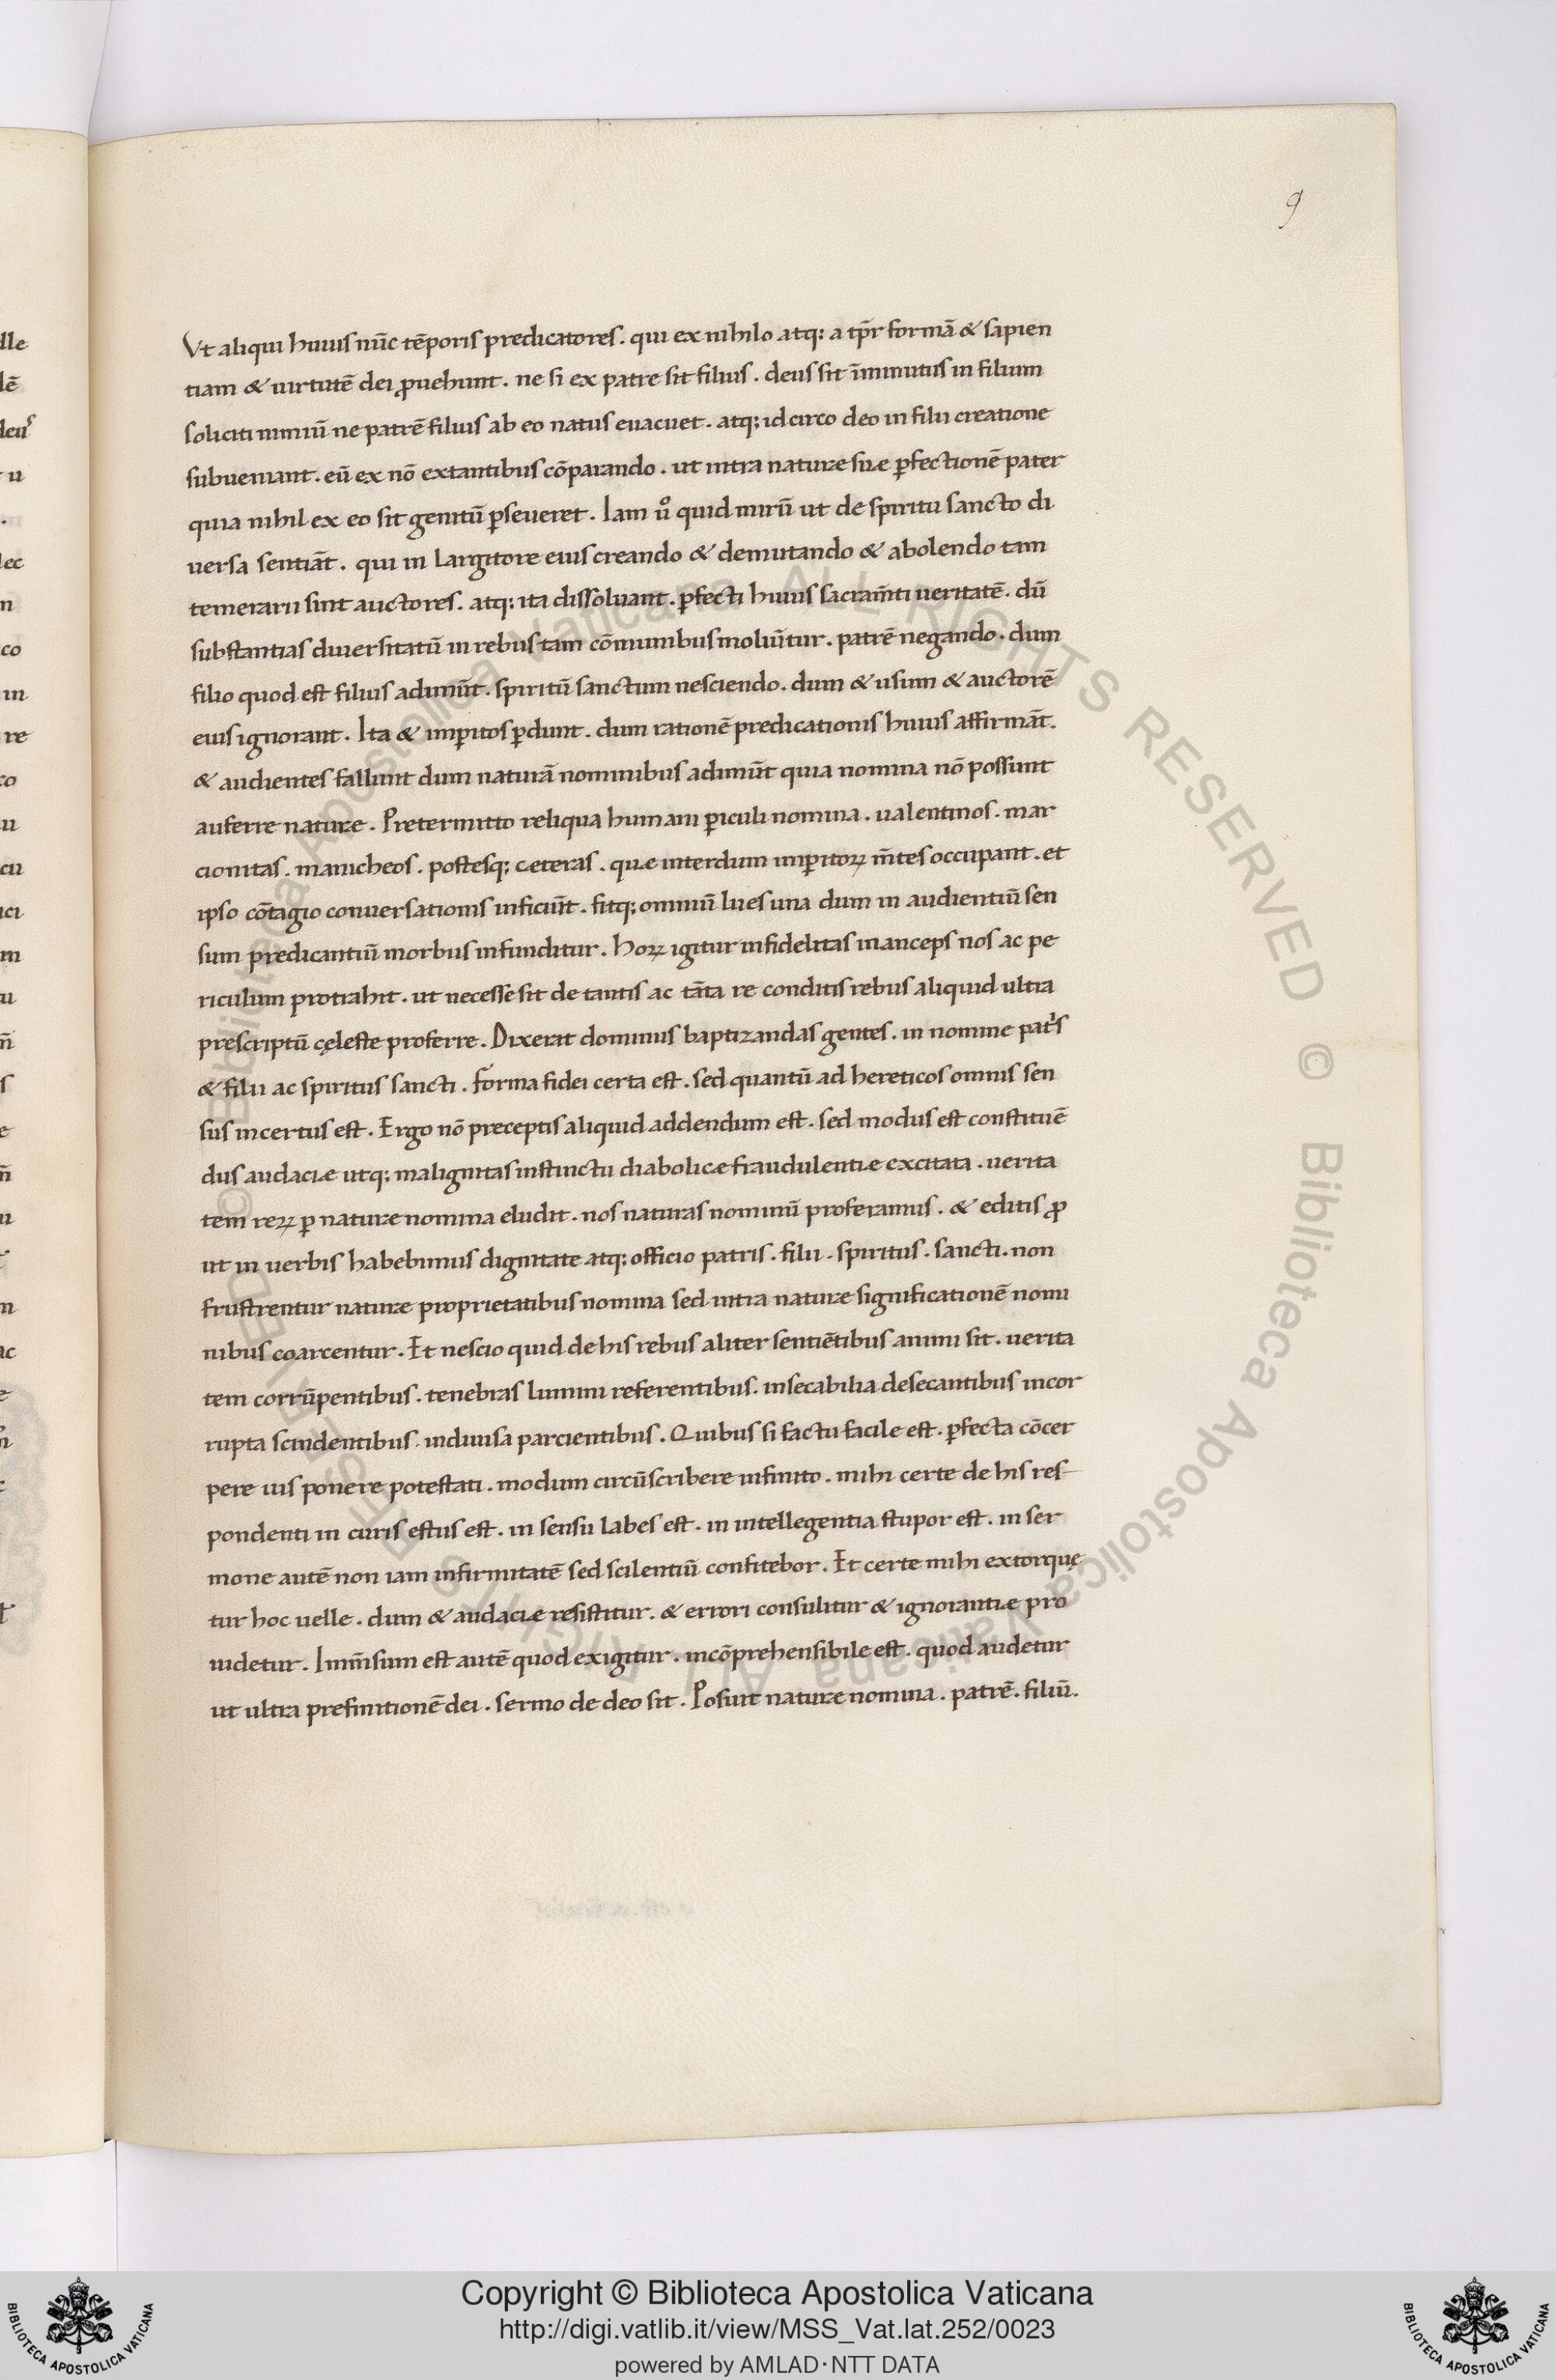 9
Vt aliqui huius nūc tēporis predicatores. qui ex nihilo atq; a tp̄r formā & sapien
tiam & uirtutē dei ꝓuehunt. ne si ex patre sit filius. deus sit īminutus in filium
soliciti nimiū ne patrē filius ab eo natus euacuet. atq; idcirco deo in filii creatione
subueniant. eū ex nō extantibus cōparando. ut intra naturæ suæ ꝑfectionē pater
quia nihil ex eo sit genitū ꝑseueret. Iam uº quid mirū ut de spiritu sancto di
uersa sentiāt. qui in largitore eius creando & demutando & abolendo tam
temerarii sint auctores. atq; ita dissoluant. ꝑfecti huius sacram̄ti ueritatē. dū
substantias diuersitatū in rebus tam cōmunibus moliūtur. patrē negando. dum
filio quod est filius adimūt. spiritū sanctum nesciendo. dum & usum & auctorē
eius ignorant. Ita & imꝑitos ꝑdunt. dum rationē predicationis huius affirmāt.
& audientes fallunt dum naturā nominibus adimūt quia nomina nō possunt
auferre naturæ. Pretermitto reliqua humani ꝑiculi nomina. ualentinos. mar
cionitas. manicheos. postesq; cæteras. quæ interdum imꝑitoꝝ m̄tes occupant. et
ipso cōtagio conuersationis inficiūt. fitq; omniū lues una dum in audientiū sen
sum predicantiū morbus infunditur. Hoꝝ igitur infidelitas in anceps nos ac pe
riculum protrahit. ut necesse sit de tantis ac tāta re conditis rebus aliquid ultra
prescriptū cęleste proferre. Dixerat dominus baptizandas gentes. in nomine pat̄s
& filii ac spiritus sancti. forma fidei certa est. sed quantū ad hereticos omnis sen
sus incertus est. Ergo nō preceptis aliquid addendum est. sed modus est constituē
dus audaciæ utq; malignitas instinctu diabolicæ fraudulentiæ excitata. uerita
tem reꝝ ꝑ naturæ nomina eludit. nos naturas nominū proferamus. & editis ꝓ
ut in uerbis habebimus dignitate atq; officio patris. filii. spiritus. sancti. non
frustrentur naturæ proprietatibus nomina sed intra naturæ significationē nomi
nibus coarcentur. Et nescio quid de his rebus aliter sentiētibus animi sit. uerita
tem corrūpentibus. tenebras lumini referentibus. insecabilia desecantibus incor
rupta scindentibus. indiuisa parcientibus. Quibus si factu facile est. ꝑfecta cōcer
pere iiis ponere potestati. modum circūscribere infinito. mihi certe de his res
pondenti in curis estus est. in sensu labes est. in intellegentia stupor est. in ser
mone autē non iam infirmitatē sed scilentiū confitebor. Et certe mihi extorquę
tur hoc uelle. dum & audaciæ resistitur. & errori consulitur & ignorantiæ pro
uidetur. Imm̄sum est autē quod exigitur. incōprehensibile est. quod audetur
ut ultra prefinitionē dei. sermo de deo sit. Posuit naturæ nomina. patrē. filiū.
Copyright © Biblioteca Apostolica Vaticana
http://digi.vatlib.it/view/MSS_Vat.lat.252/0023
powered by AMLAD·NTT DATA